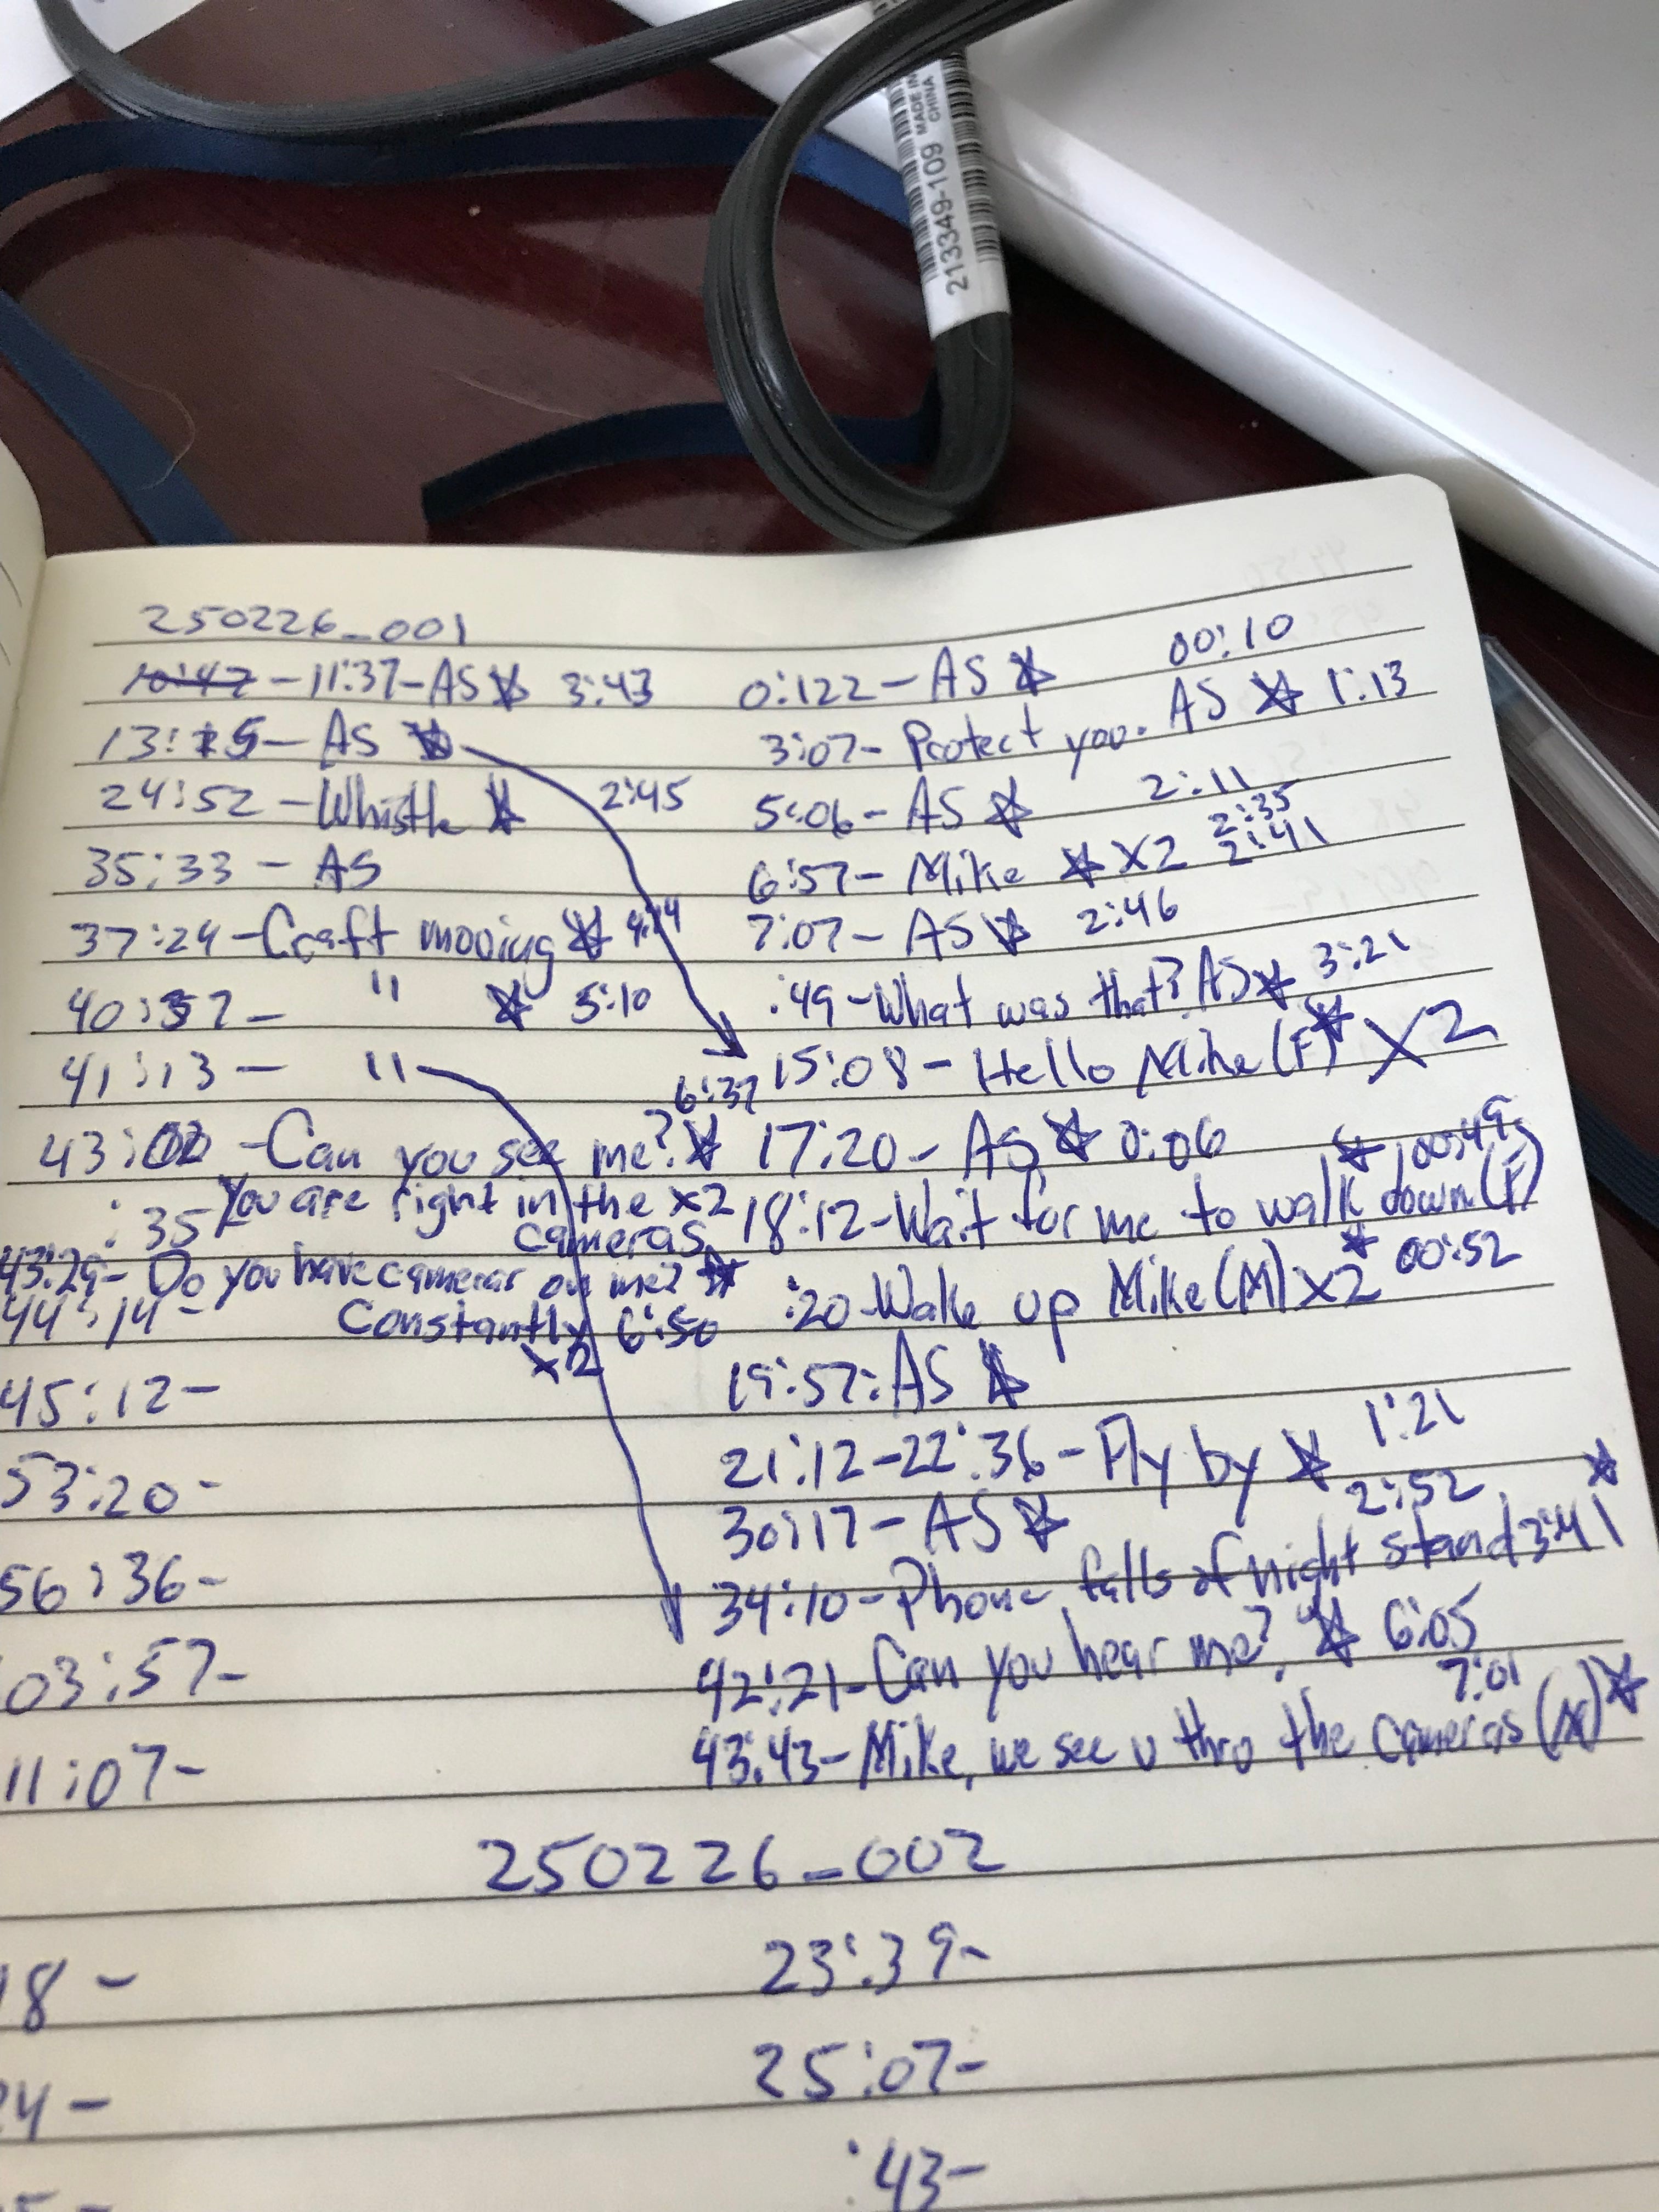 213349-109
MADE IN
CHINA
250226_001
10:47 - 11:37 - AS ☆ 3:43
13:15 - AS ☆
24:52 - Whistle ☆ 2:45
35:33 - AS
37:24 - Craft moving ☆ 4:14
40:37 - " ☆ 5:10
41:13 - "
43:00 - Can you see me? ☆ 6:37
:35 You are right in the x2
cameras
43:29 - Do you have cameras on me? ☆
44:14 - Constantly 6:50
x2
45:12 -
53:20 -
56:36 -
03:57 -
11:07 -
0:122 - AS ☆ 00:10
3:07 - Protect you. AS ☆ 1:13
5:06 - AS ☆ 2:11
6:57 - Mike ☆ X2 2:35
2:41
7:07 - AS ☆ 2:46
:49 - What was that? AS ☆ 3:21
15:08 - Hello Mike (F) ☆ X2
17:20 - AS ☆ 0:06
18:12 - Wait for me to walk down (F) ☆ 00:49
:20 - Wake up Mike (M) X2 ☆ 00:52
19:57: AS ☆
21:12 - 22:36 - Fly by ☆ 1:21
30:17 - AS ☆ 2:52
34:10 - Phone falls of night stand 3:41 ☆
42:21 - Can you hear me? ☆ 6:05
43:43 - Mike, we see u thro the cameras ☆ 7:01
250226_002
18 -
24 -
23:39 -
25:07 -
:43 -